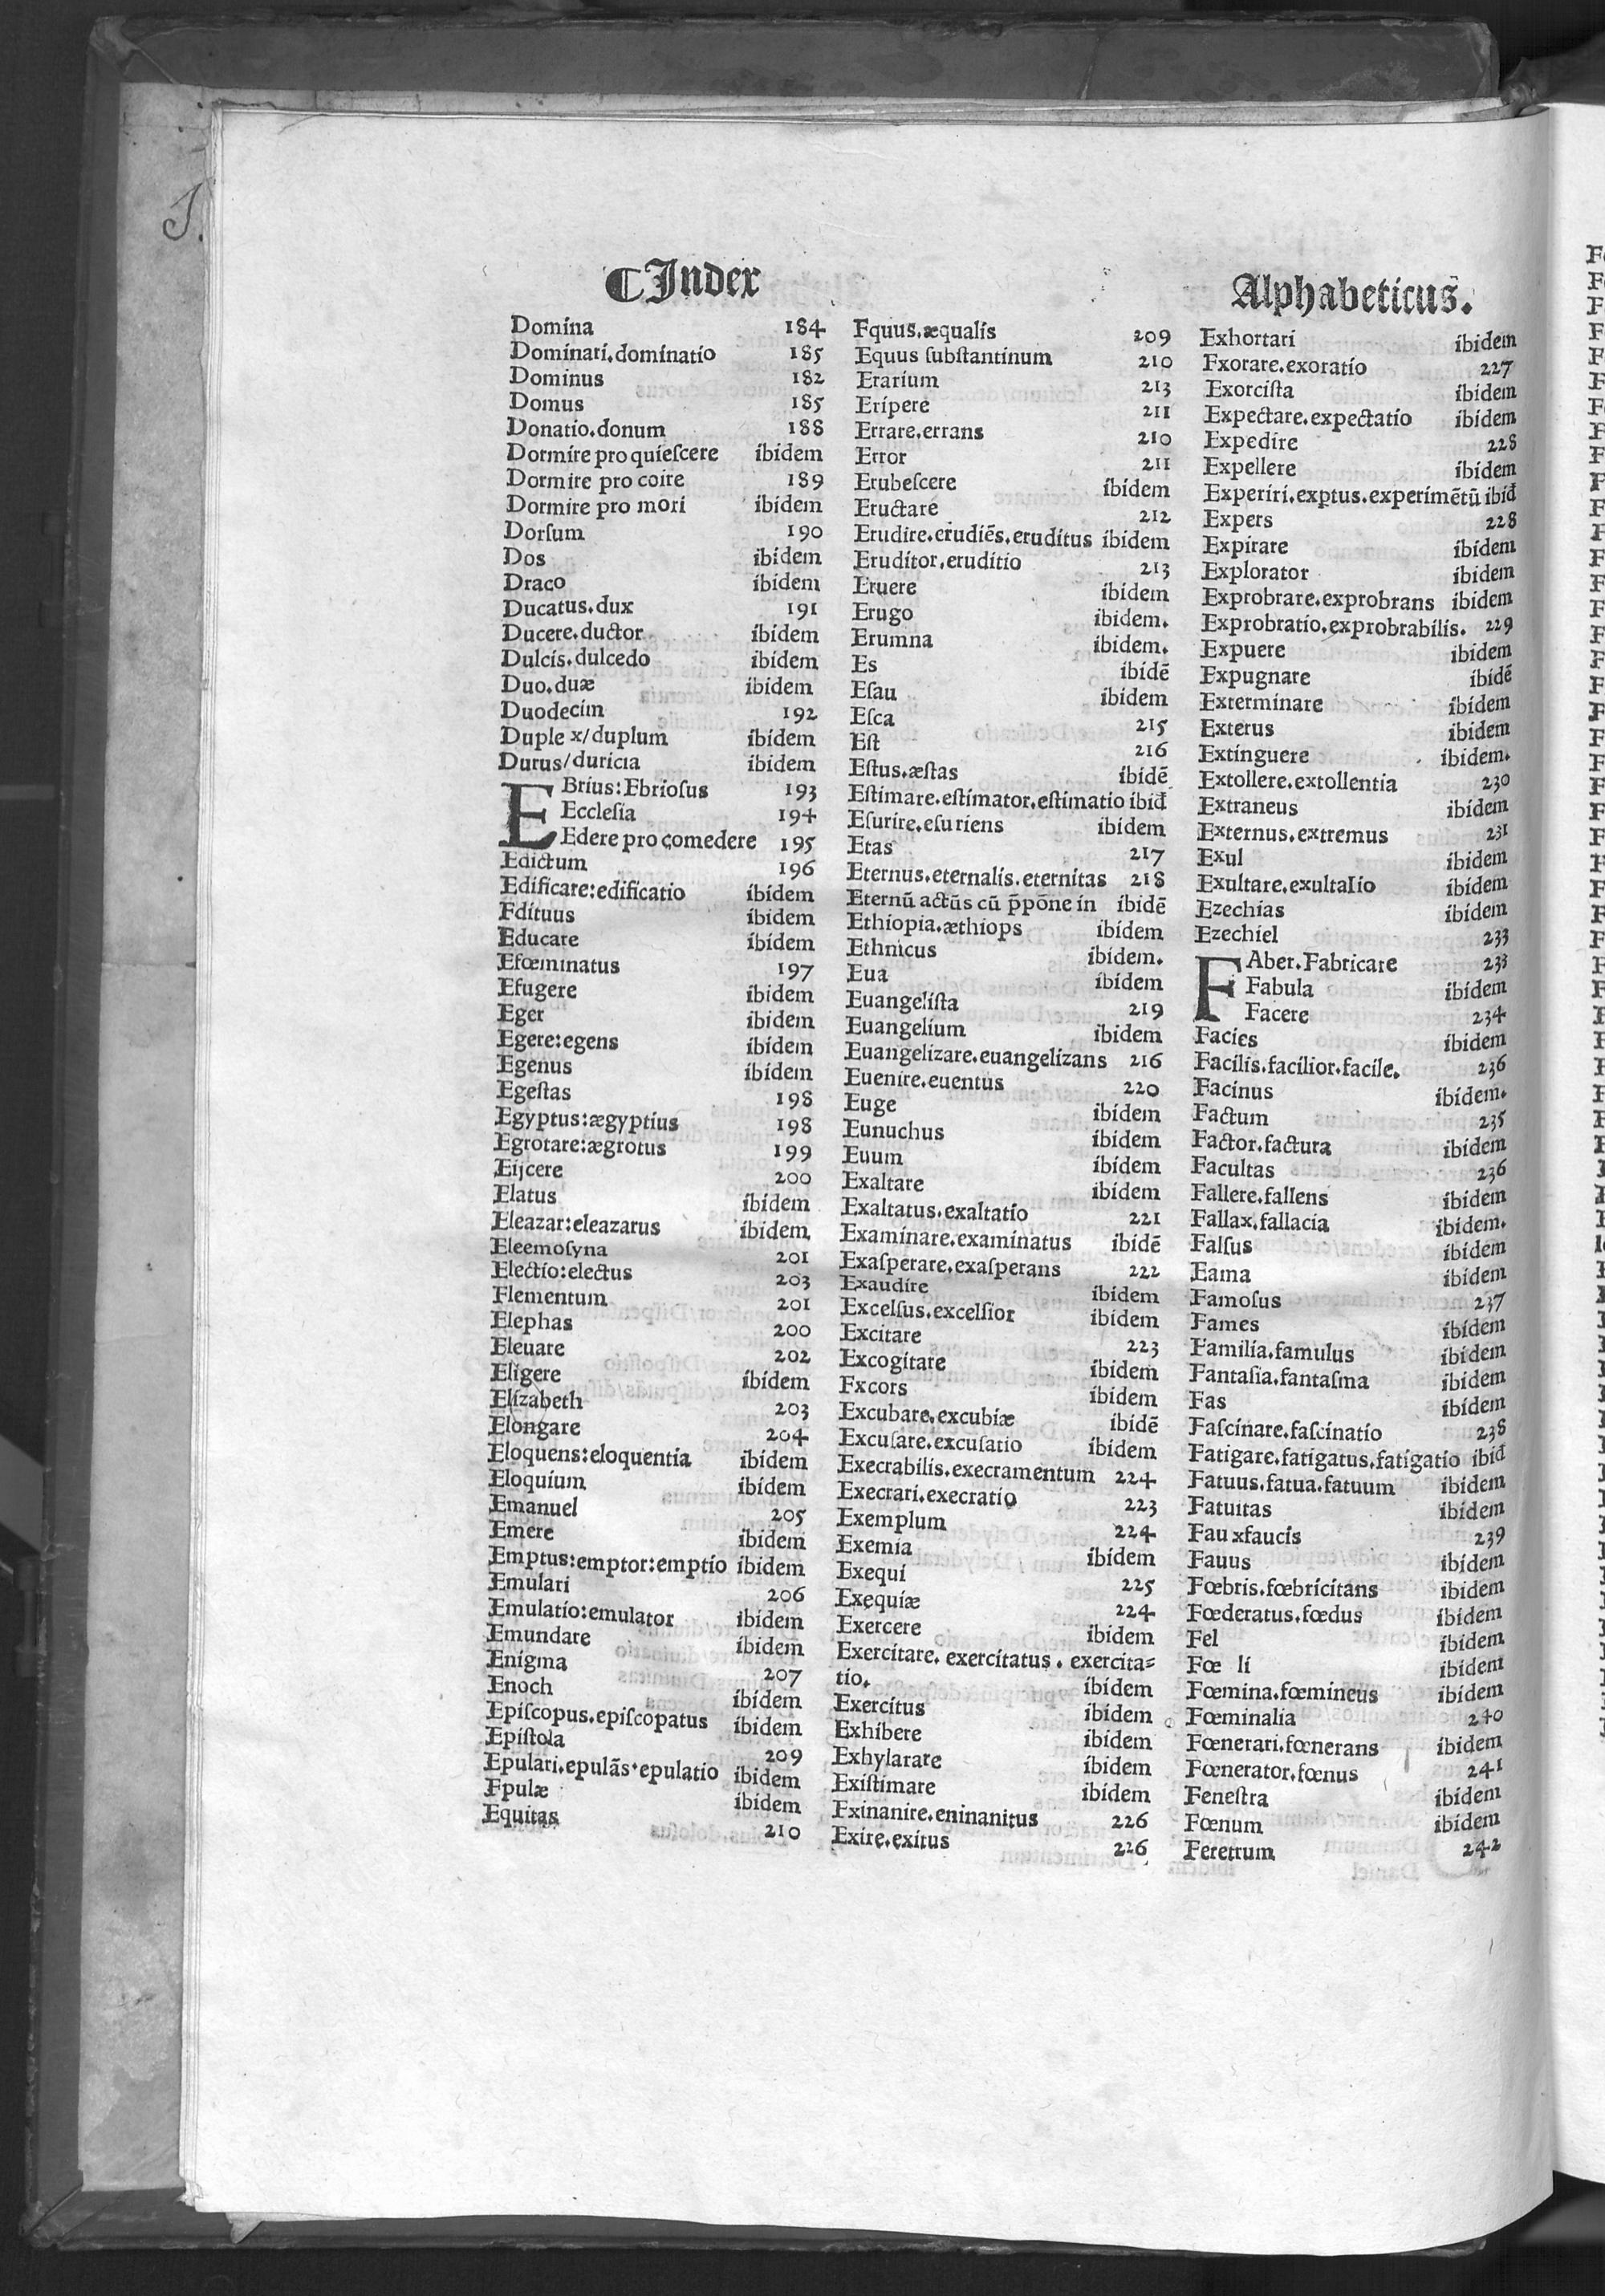 J.
¶Index Alphabeticus.
Domina 184
Dominari.dominatio 185
Dominus 182
Domus 185
Donatio.donum 188
Dormire pro quieſcere ibidem
Dormire pro coire 189
Dormire pro mori ibidem
Dorſum 190
Dos ibidem
Draco ibidem
Ducatus.dux 191
Ducere.ductor ibidem
Dulcis.dulcedo ibidem
Duo.duæ ibidem
Duodecim 192
Duple x/duplum ibidem
Durus/duricia ibidem
EBrius:Fbrioſus 193
Eccleſia 194
Edere pro comedere 195
Edictum 196
Edificare:edificatio ibidem
Fdituus ibidem
Educare ibidem
Efœminatus 197
Efugere ibidem
Eger ibidem
Egere:egens ibidem
Egenus ibidem
Egeſtas 198
Egyptus:ægyptius 198
Egrotare:ægrotus 199
Eijcere 200
Elatus ibidem
Eleazar:eleazarus ibidem
Eleemoſyna 201
Electio:electus 203
Flementum 201
Elephas 200
Eleuare 202
Eligere ibidem
Elizabeth 203
Elongare 204
Eloquens:eloquentia ibidem
Eloquium ibidem
Emanuel 205
Emere ibidem
Emptus:emptor:emptio ibidem
Emulari 206
Emulatio:emulator ibidem
Emundare ibidem
Enigma 207
Enoch ibidem
Epiſcopus.epiſcopatus ibidem
Epiſtola 209
Epulari.epulãs.epulatio ibidem
Fpulæ ibidem
Equitas 210
Fquus.æqualis 209
Equus ſubſtantinum 210
Erarium 213
Eripere 211
Errare.errans 210
Error 211
Erubeſcere ibidem
Eructare 212
Erudire.erudiẽs.eruditus ibidem
Eruditor.eruditio 213
Eruere ibidem
Erugo ibidem.
Erumna ibidem.
Es ibidẽ
Eſau ibidem
Eſca 215
Eſt 216
Eſtus.æſtas ibidẽ
Eſtimare.eſtimator.eſtimatio ibiđ
Eſurire.eſuriens ibidem
Etas 217
Eternus.eternalis.eternitas 218
Eternũ actũs cũ p̃põne in ibidẽ
Ethiopia.æthiops ibidem
Ethnicus ibidem.
Eua ibidem
Euangeliſta 219
Euangelium ibidem
Euangelizare.euangelizans 216
Euenire.euentus 220
Euge ibidem
Eunuchus ibidem
Euum ibidem
Exaltare ibidem
Exaltatus.exaltatio 221
Examinare.examinatus ibidẽ
Exaſperare.exaſperans 222
Exaudire ibidem
Excelſus.excelſior ibidem
Excitare 223
Excogitare ibidem
Fxcors ibidem
Excubare.excubiæ ibidẽ
Excuſare.excuſatio ibidem
Execrabilis.execramentum 224
Execrari.execratio 223
Exemplum 224
Exemia ibidem
Exequi 225
Exequiæ 224
Exercere ibidem
Exercitare. exercitatus . exercita=
tio. ibidem
Exercitus ibidem
Exhibere ibidem
Exhylarare ibidem
Exiſtimare ibidem
Exinanire.eninanitus 226
Exire.exitus 226
Exhortari ibidem
Fxorare.exoratio 227
Exorciſta ibidem
Expectare.expectatio ibidem
Expedire 228
Expellere ibidem
Experiri.exptus.experimẽtũ ibiđ
Expers 228
Expirare ibidem
Explorator ibidem
Exprobrare.exprobrans ibidem
Exprobratio.exprobrabilis. 229
Expuere ibidem
Expugnare ibidẽ
Exterminare ibidem
Exterus ibidem
Extinguere ibidem.
Extollere.extollentia 230
Extraneus ibidem
Externus.extremus 231
Exul ibidem
Exultare.exultaIio ibidem
Ezechias ibidem
Ezechiel 233
FAber.Fabricare 233
Fabula ibidem
Facere 234
Facies ibidem
Facilis.facilior.facile. 236
Facinus ibidem.
Factum 235
Factor.factura ibidem
Facultas 236
Fallere.fallens ibidem
Fallax.fallacia ibidem.
Falſus ibidem
Eama ibidem
Famoſus 237
Fames ibidem
Familia.famulus ibidem
Fantaſia.fantaſma ibidem
Fas ibidem
Faſcinare.faſcinatio 238
Fatigare.fatigatus.fatigatio ibiđ
Fatuus.fatua.fatuum ibidem
Fatuitas ibidem
Fau xfaucis 239
Fauus ibidem
Fœbris.fœbricitans ibidem
Fœderatus.fœdus ibidem
Fel ibidem
Fœ li ibidem
Fœmina.fœmineus ibidem
Fœminalia 240
Fœnerari.fœnerans ibidem
Fœnerator.fœnus 241
Feneſtra ibidem
Fœnum ibidem
Feretrum 242